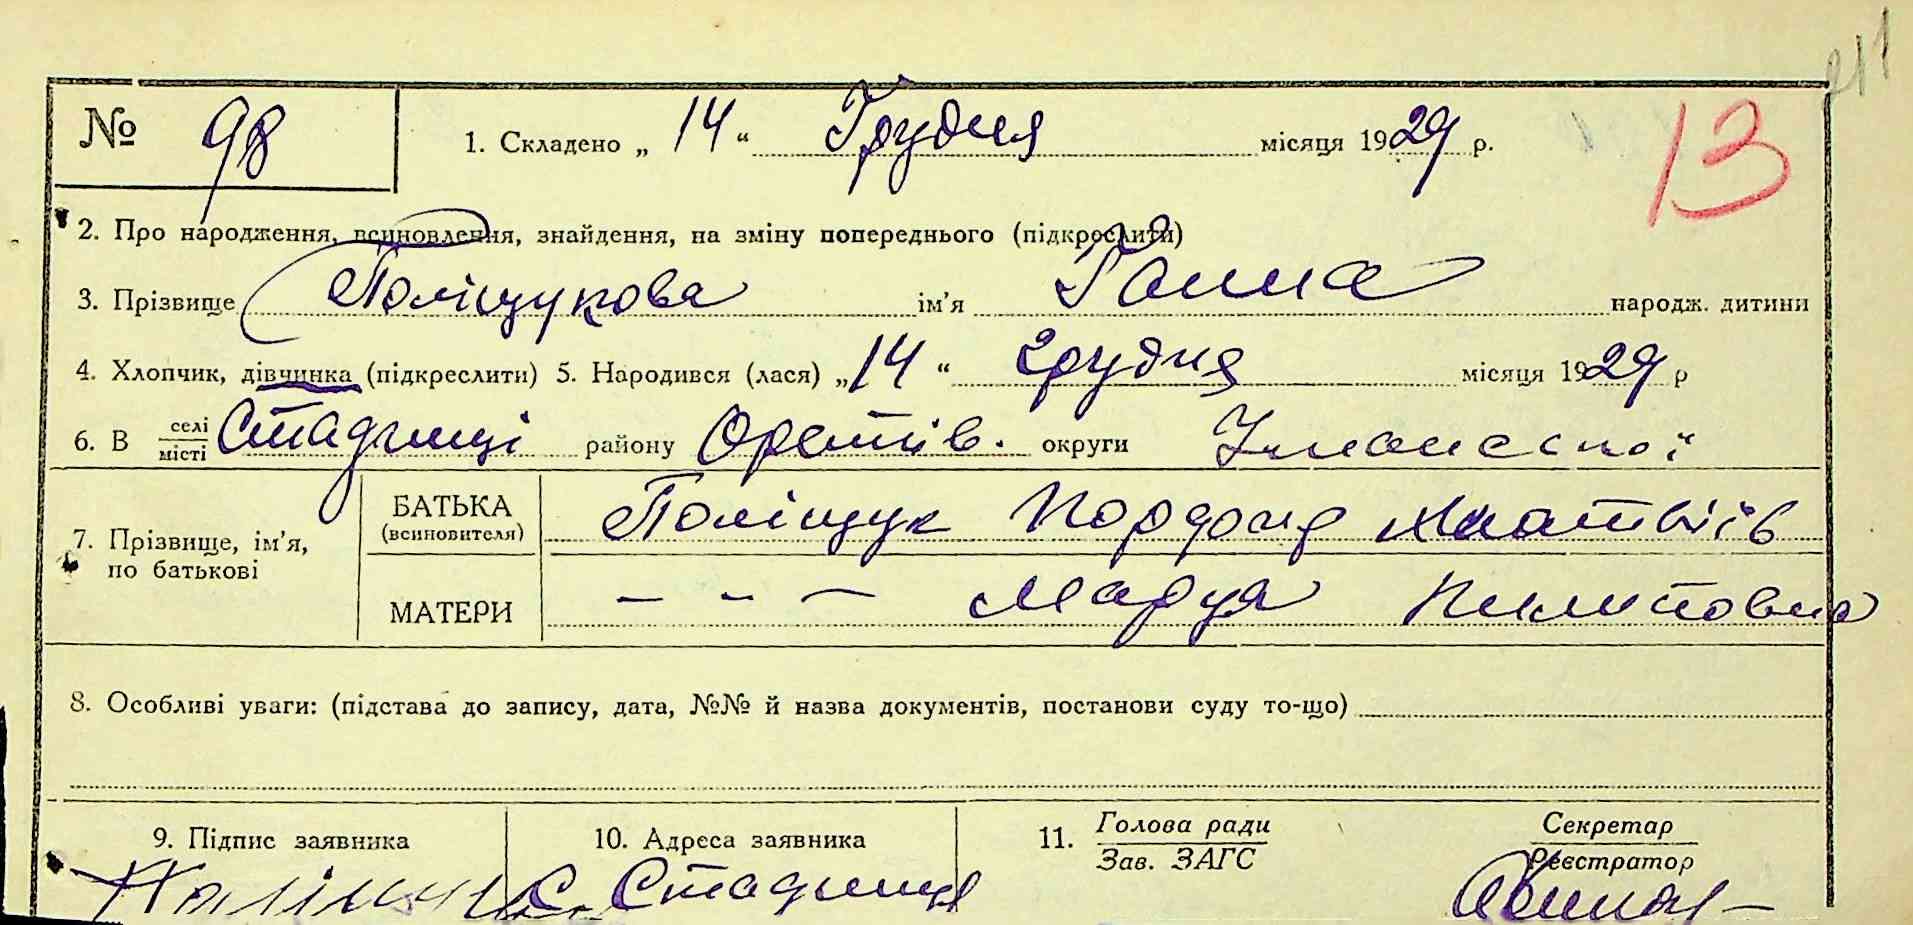 № 98 1. Складено „ 14 “ Грудня місяця 1929 р. 13
2. Про народження, всиновлення, знайдення, на зміну попереднього (підкреслити)
3. Прізвище Поліщукова ім'я Ганна народж. дитини
4. Хлопчик, дівчинка (підкреслити) 5. Народився (лася) „ 14 “ грудня місяця 1929 р
6. В селі місті Стадниці району Оратів. округи Уманської
7. Прізвище, ім'я, по батькові
БАТЬКА (всиновителя) Поліщук Матвіїв
МАТЕРИ – – – Марія Пилиповна
8. Особливі уваги: (підстава до запису, дата, №№ й назва документів, постанови суду то-що)
9. Підпис заявника 10. Адреса заявника 11. Голова ради Зав. ЗАГС Секретар Реєстратор
С Стадниця